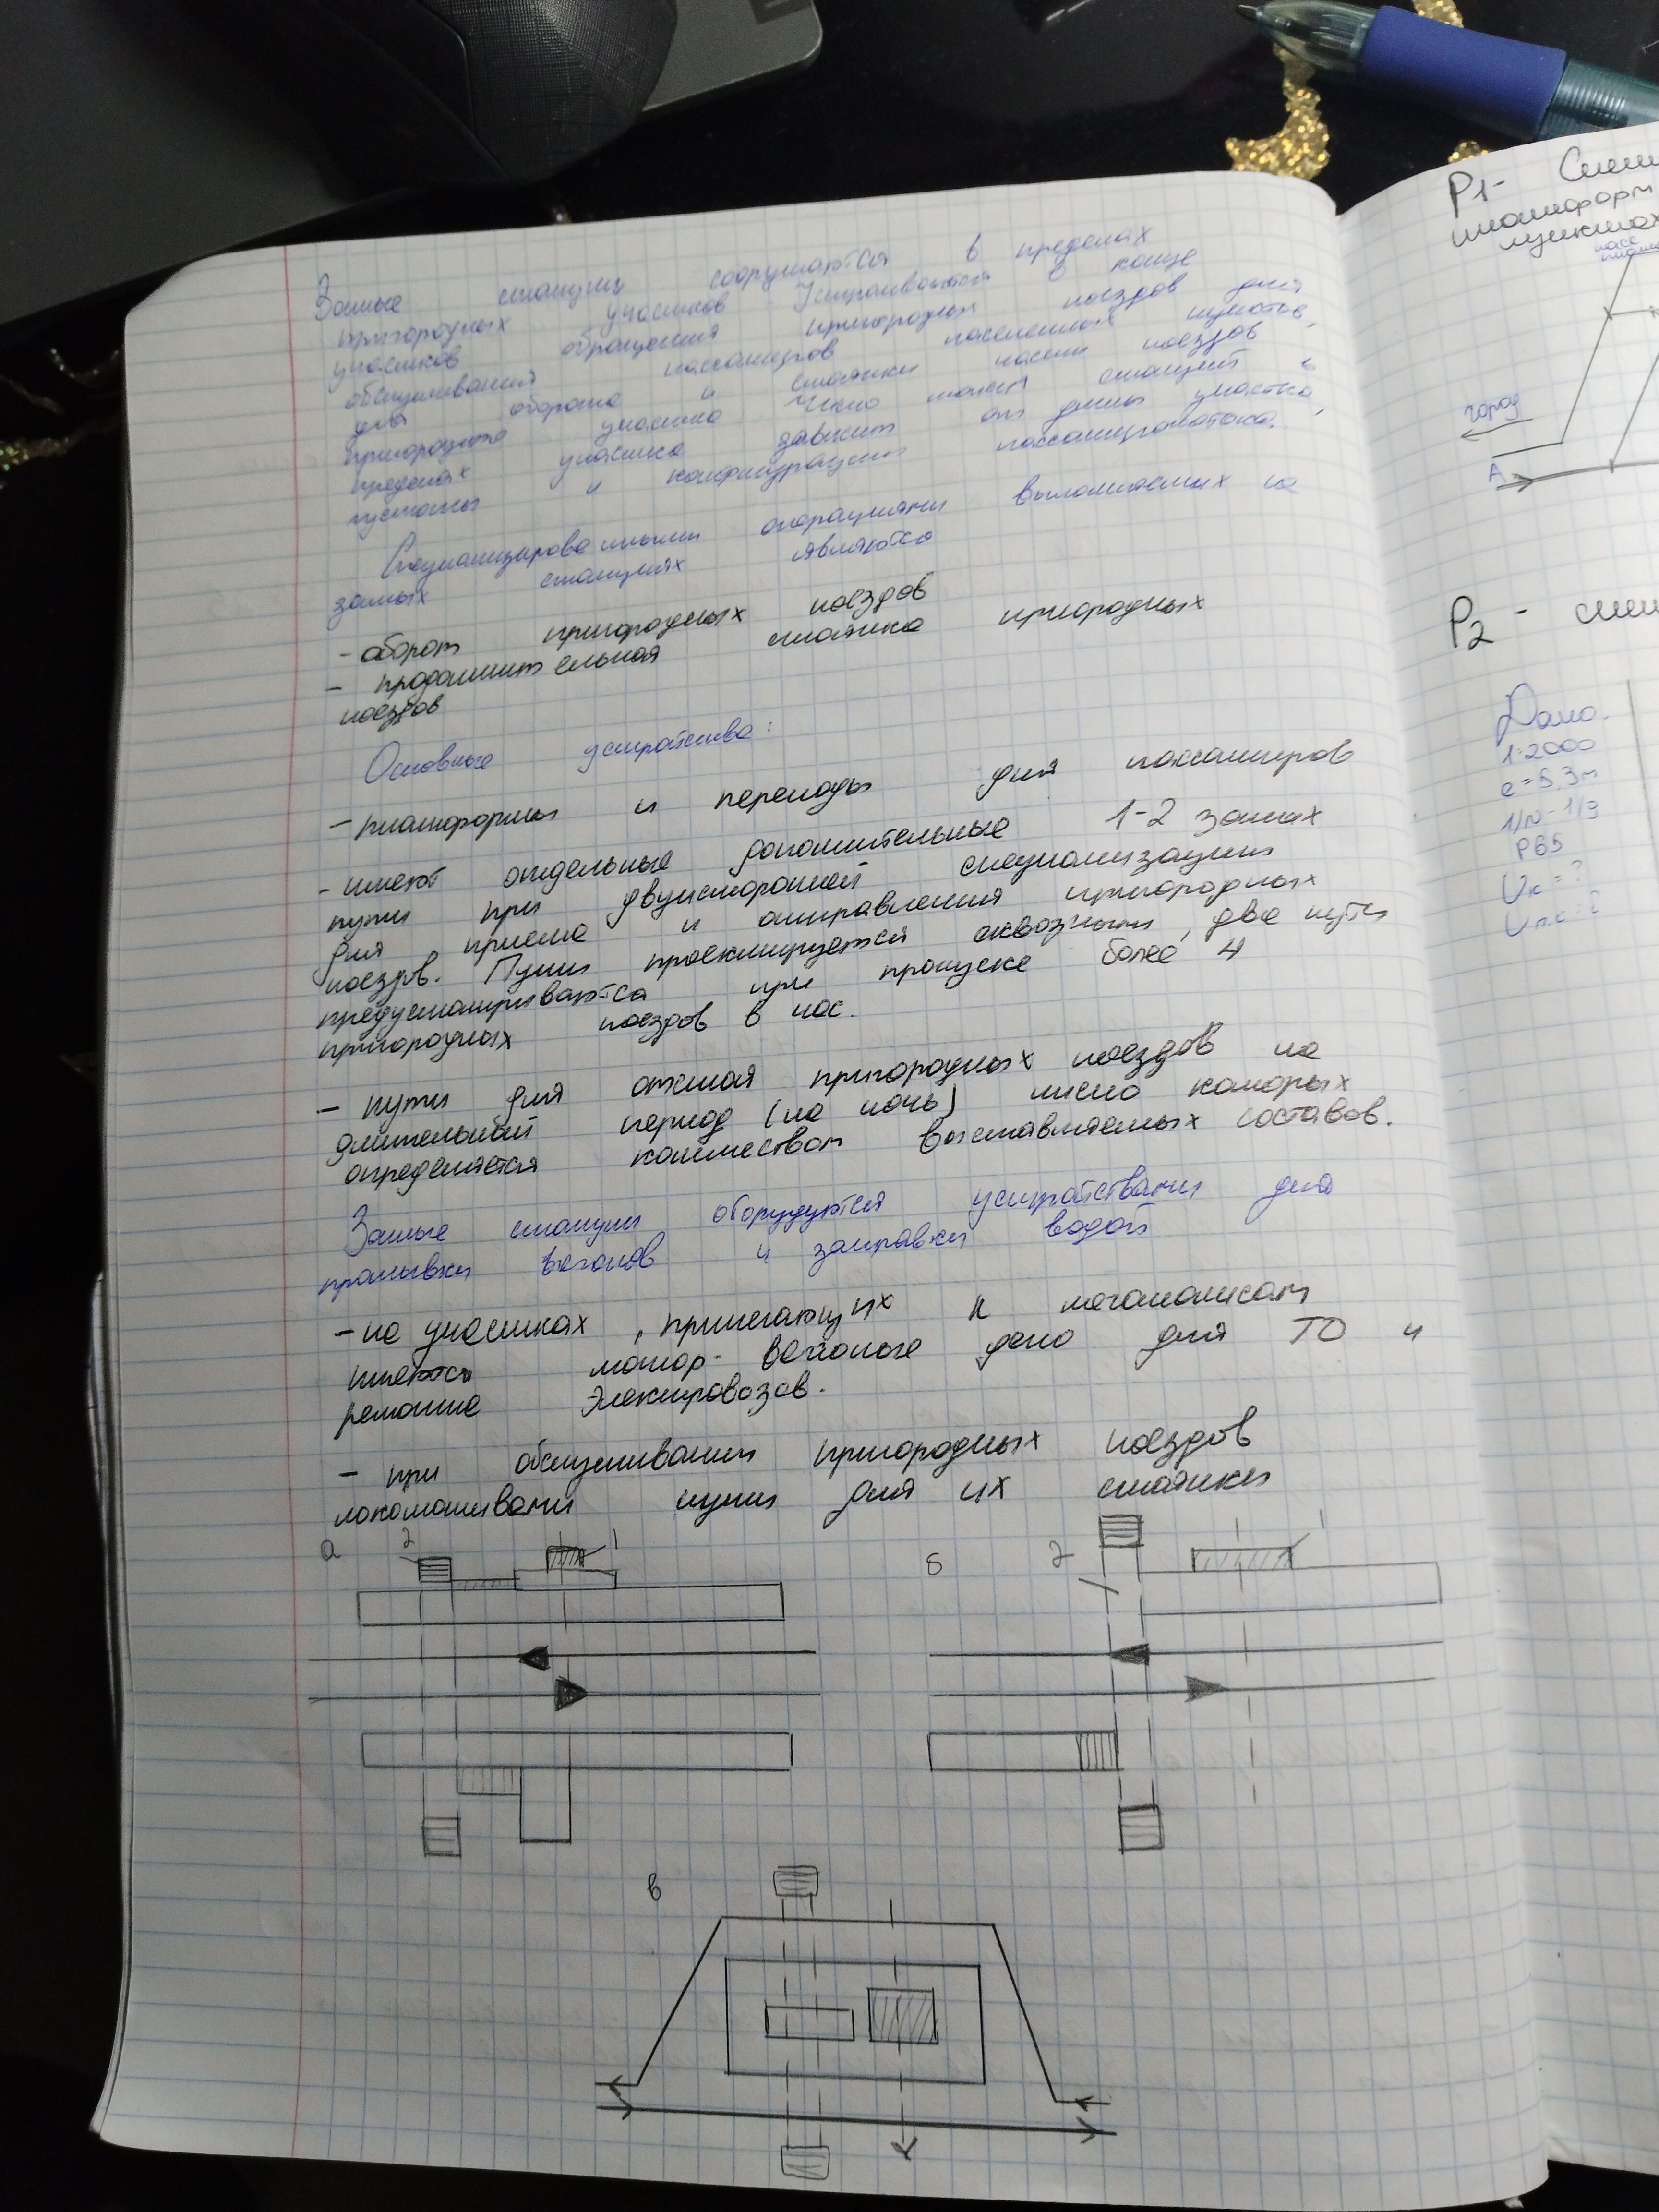 Зонные станции сооружаются в пределах
пригородных участков Устраиваются в конце
участков обращения пригородных поездов для
обслуживания пассажиров населенных пунктов,
для оборота и стоянки поездов
пригородного участка Число таких станций в
пределах участка зависит от длины участка,
густоты и конфигурации пассажиропотока.
Специализированными операциями выполняемых на
зонных станциях являются
- оборот пригородных поездов
- продолжительная стоянка пригородных
поездов
Основные устройства:
- платформы и переходы для пассажиров
- имеют отдельные дополнительные 1-2 зонных
пути при двухсторонней специализации
для приема и отправления пригородных
поездов. Пути проектируется сквозными, два пути
предусматриваются при пропуске более 4
пригородных поездов в час.
- пути для отстоя пригородных поездов на
длительный период (на ночь) число которых
определяется количеством выставляемых составов.
Зонные станции оборудуются устройствами для
промывки вагонов и заправки водой
- на участках, прилегающих к мегаполисам
имеются мотор-вагонные депо для ТО и
ремонта электровозов.
- при обслуживании пригородных поездов
локомотивами пути для их стоянки
а 2 1
б 2 1
в
P1-
город
А
P2 -
Дано.
1:2000
e=5,3м
1/N-1/9
P65